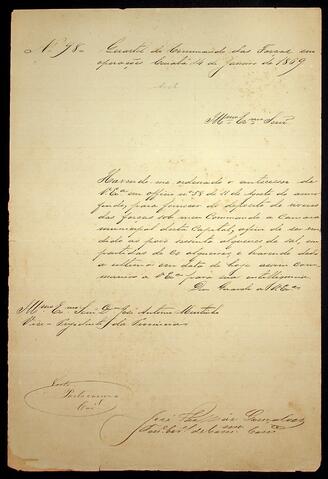 Nº 98 - Quartel do Commando das Forças em
operações Cuiabá 14 de Janeiro de 1869
Illmo. Exmo. Senr.
Havendo me ordenado o antecessor de
V. Exª em officio nº 58 de 21 de Agosto do anno
findo, para fornecer do deposito de viveres
das forças sob meu Commando a Camara
municipal desta Capital, afim de ser ven-
dido ao povo sessenta alqueires de sal, em
partidas de 20 alqueires e havendo dado
a ultima em data de hoje assim com-
munico a V. Exª para sua intelligencia
Deus Guarde a V. Exª
Illmo. Exmo. Senr. José Antonio Murtinho
Vice-Presidente da Provincia
José